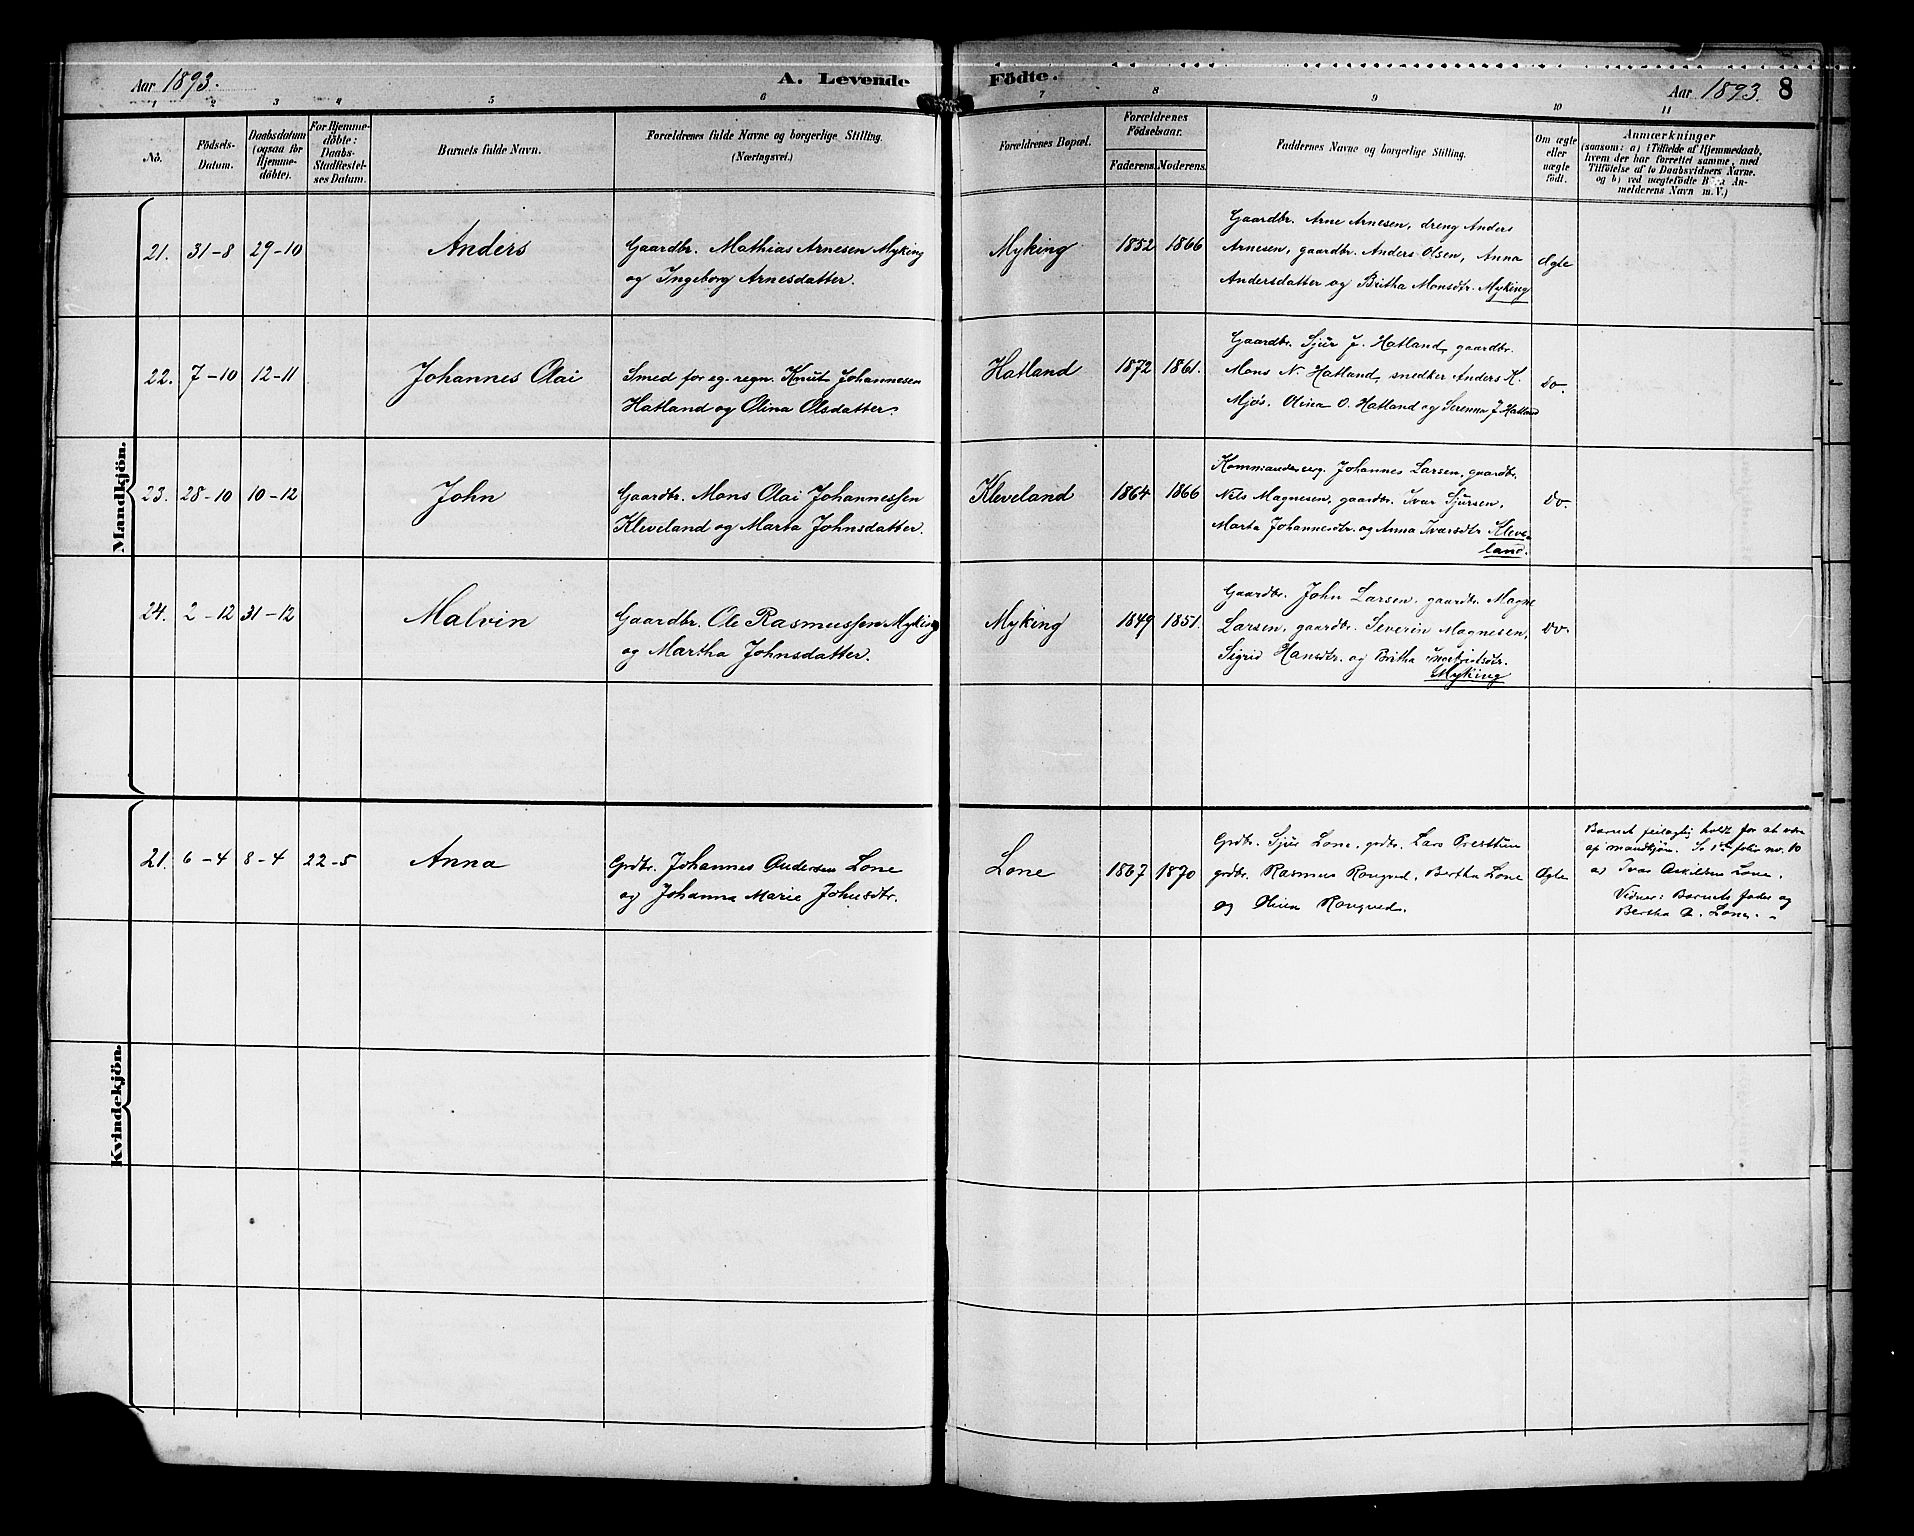 Aar 1893.
A. Levende Födte.
Aar 1893. 8
1 2 3 4 5 6 7 8 9 10 11
No.
Födsels-
Datum.
Daabsdatum
(ogsaa for
Hjemme-
döbte).
For Hjemme-
döbte:
Daabs-
Stadfæstel-
ses Datum.
Barnets fulde Navn.
Forældrenes fulde Navne og borgerlige Stilling.
(Næringsvei.)
Forældrenes Bopæl.
Forældrenes
Födselsaar.
Faderens. Moderens.
Faddernes Navne og borgerlige Stilling.
Om ægte
eller
uægte
födt.
Anmærkninger
(saasom: a) i Tilfælde af Hjemmedaab,
hvem der har forrettet samme, med
Tilföielse af to Daabsvidners Navne.
og b) ved uægtefödte Börn An-
melderens Navn m. V.)
Mandkjön.
21. 31-8 29-10
Anders
Gaardbr. Mathias Arnesen Myking
og Ingeborg Arnesdatter.
Myking
1852 1866
Gaardbr. Arne Arnesen, dreng Anders
Arnesen, gaardbr. Anders Olsen, Anna
Andersdatter og Britha Monsdtr. Myking
Ægte
22. 7-10 12-11
Johannes Olai
Smed for eg. regn. Knut Johannesen
Hatland og Olina Olsdatter.
Hatland
1872 1861.
Gaardbr. Sjur J. Hatland, gaardbr.
Mons N. Hatland, snedker Anders K.
Mjøs. Olina O. Hatland og Serenna J. Hatland
do.
23. 28-10 10-12
John
Gaardbr. Mons Olai Johannessen
Kleveland og Marta Johnsdatter.
Kleveland
1864 1866
Johannes Larsen, gaardbr.
Nils Magnesen, gaardbr. Ivar Sjursen,
Marta Johannesdtr. og Anna Ivarsdtr. Kleve-
land.
do.
24. 2-12 31-12
Malvin
Gaardbr. Ole Rasmussen Myking
og Martha Johnsdatter.
Myking
1849 1851.
Gaardbr. John Larsen, gaardbr. Magne
Larsen, gaardbr. Severin Magnesen,
Sigrid Hansdtr. og Britha
Myking
do.
Kvindekjön.
21. 6-4 8-4 22-5
Anna
Grdbr. Johannes Andersen Lone
og Johanna Marie Johnsdtr.
Lone
1867 1870
Grdbr. Sjur Lone, grdbr. Lars Presttun
grdbr. Rasmus Rongved, Bertha Lone
og Olina Rongved.
Ægte
Barnet feilagtig holdt for at være
af mandkjøn. Se folio no. 10
af Ivar Askildsen Lone.
Vidner: Barnets fader og
Bertha A. Lone.